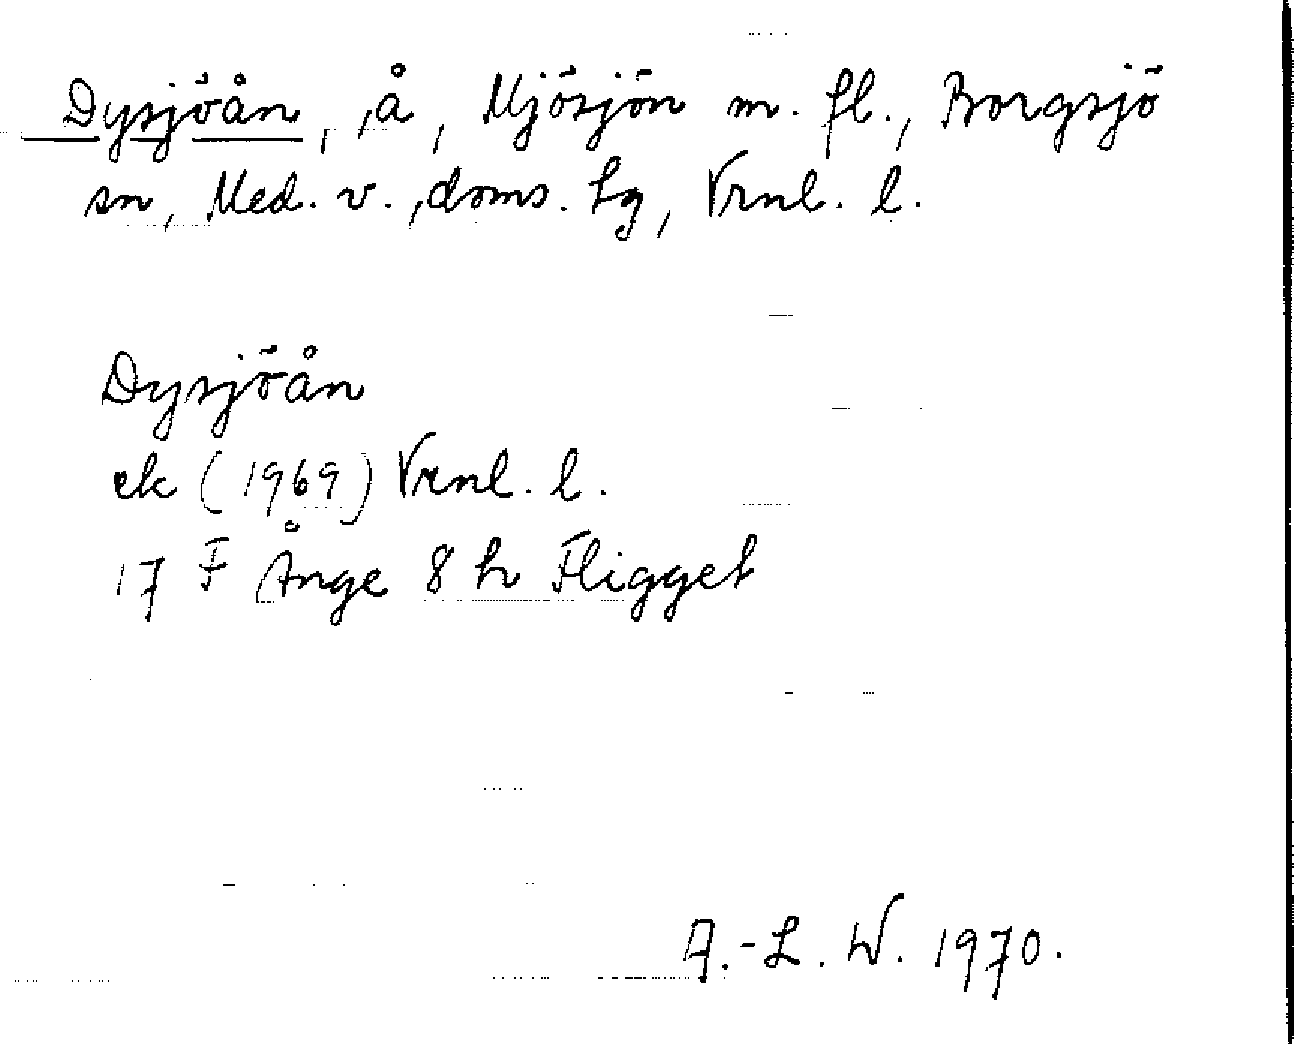 Dysjöån, å, Mjösjön m. fl., Borgsjö
sn, Med. v., doms. Lg, Vrnl. l.
Dysjöån
ek (1969) Vrnl. l.
17 F Ånge 8 h Fligget
A.-L. W. 1970.